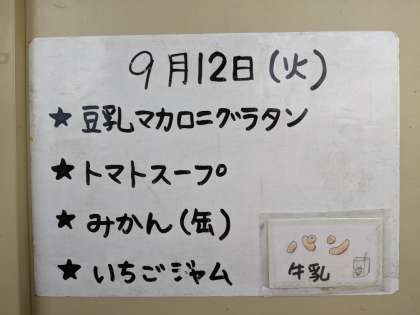 9月12日(火)
★豆乳マカロニグラタン
★トマトスープ
★みかん(缶)
★いちごジャム
パン
牛乳